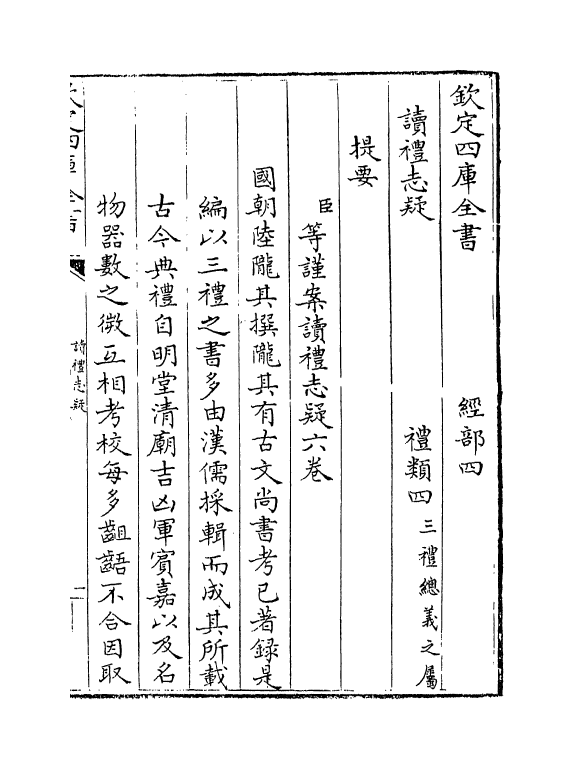 欽定四庫全書　　　經部四
讀禮志疑　　　禮類四三禮總義之屬
提要
臣等謹案讀禮志疑六卷
國朝陸隴其撰隴其有古文尚書考已著録是
編以三禮之書多由漢儒採輯而成其所載
古今典禮自明堂清廟吉凶軍賓嘉以及名
物器數之微互相考校每多齟齬不合因取
欽定四庫全書
讀禮志疑
一